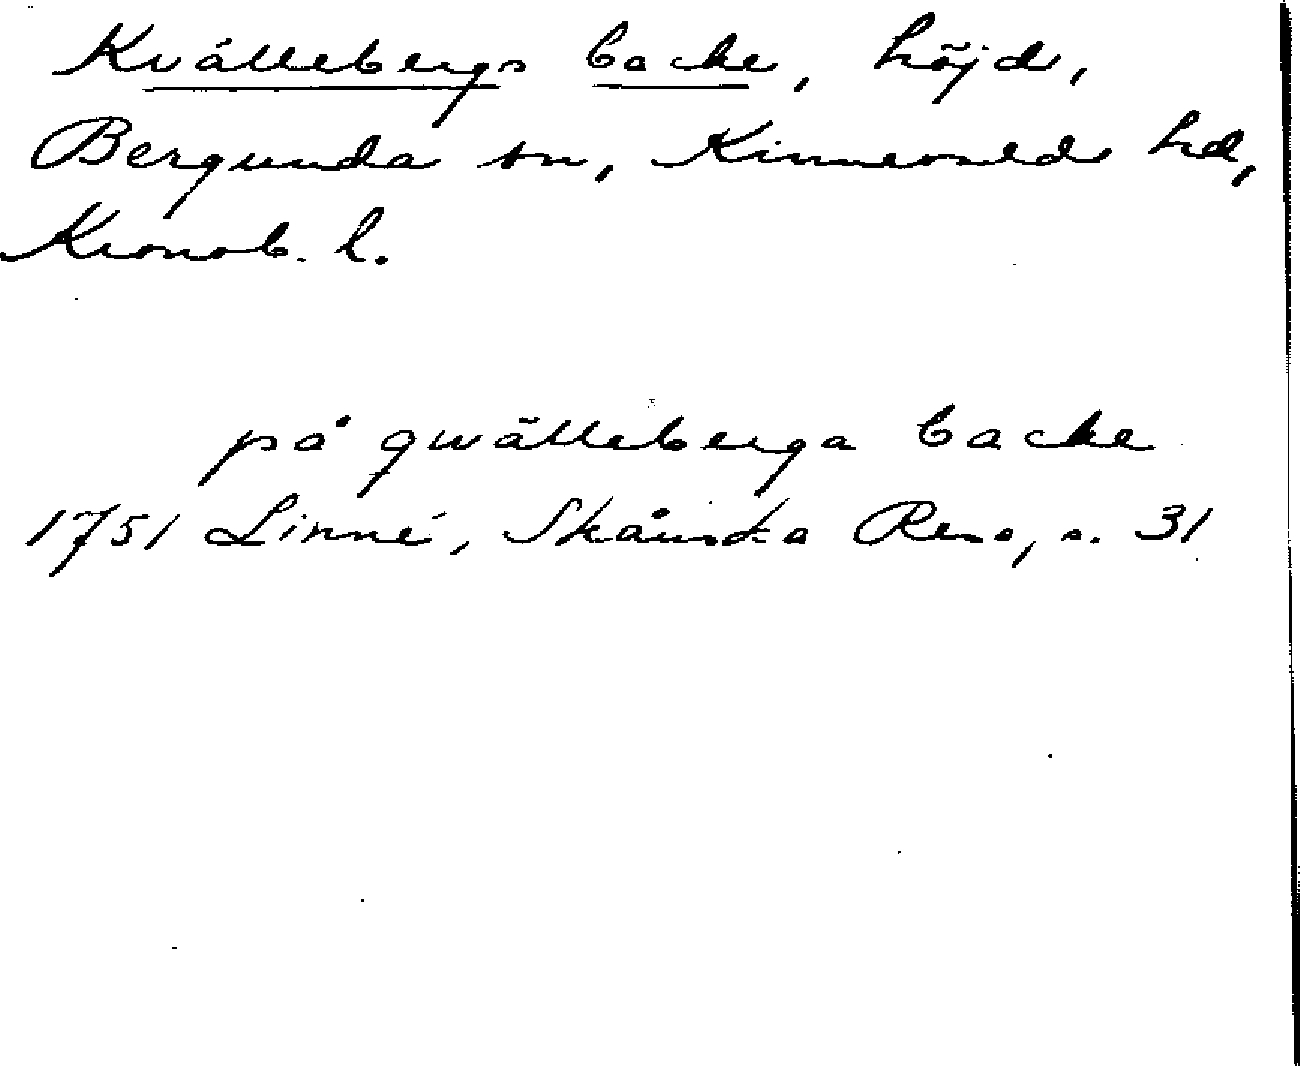 Kvällebergs backe, höjd,
Bergunda sn, Kinnevald hd,
Kronob. l.
på qwälleberga backe
1751 Linné, Skånska Resa, s. 31